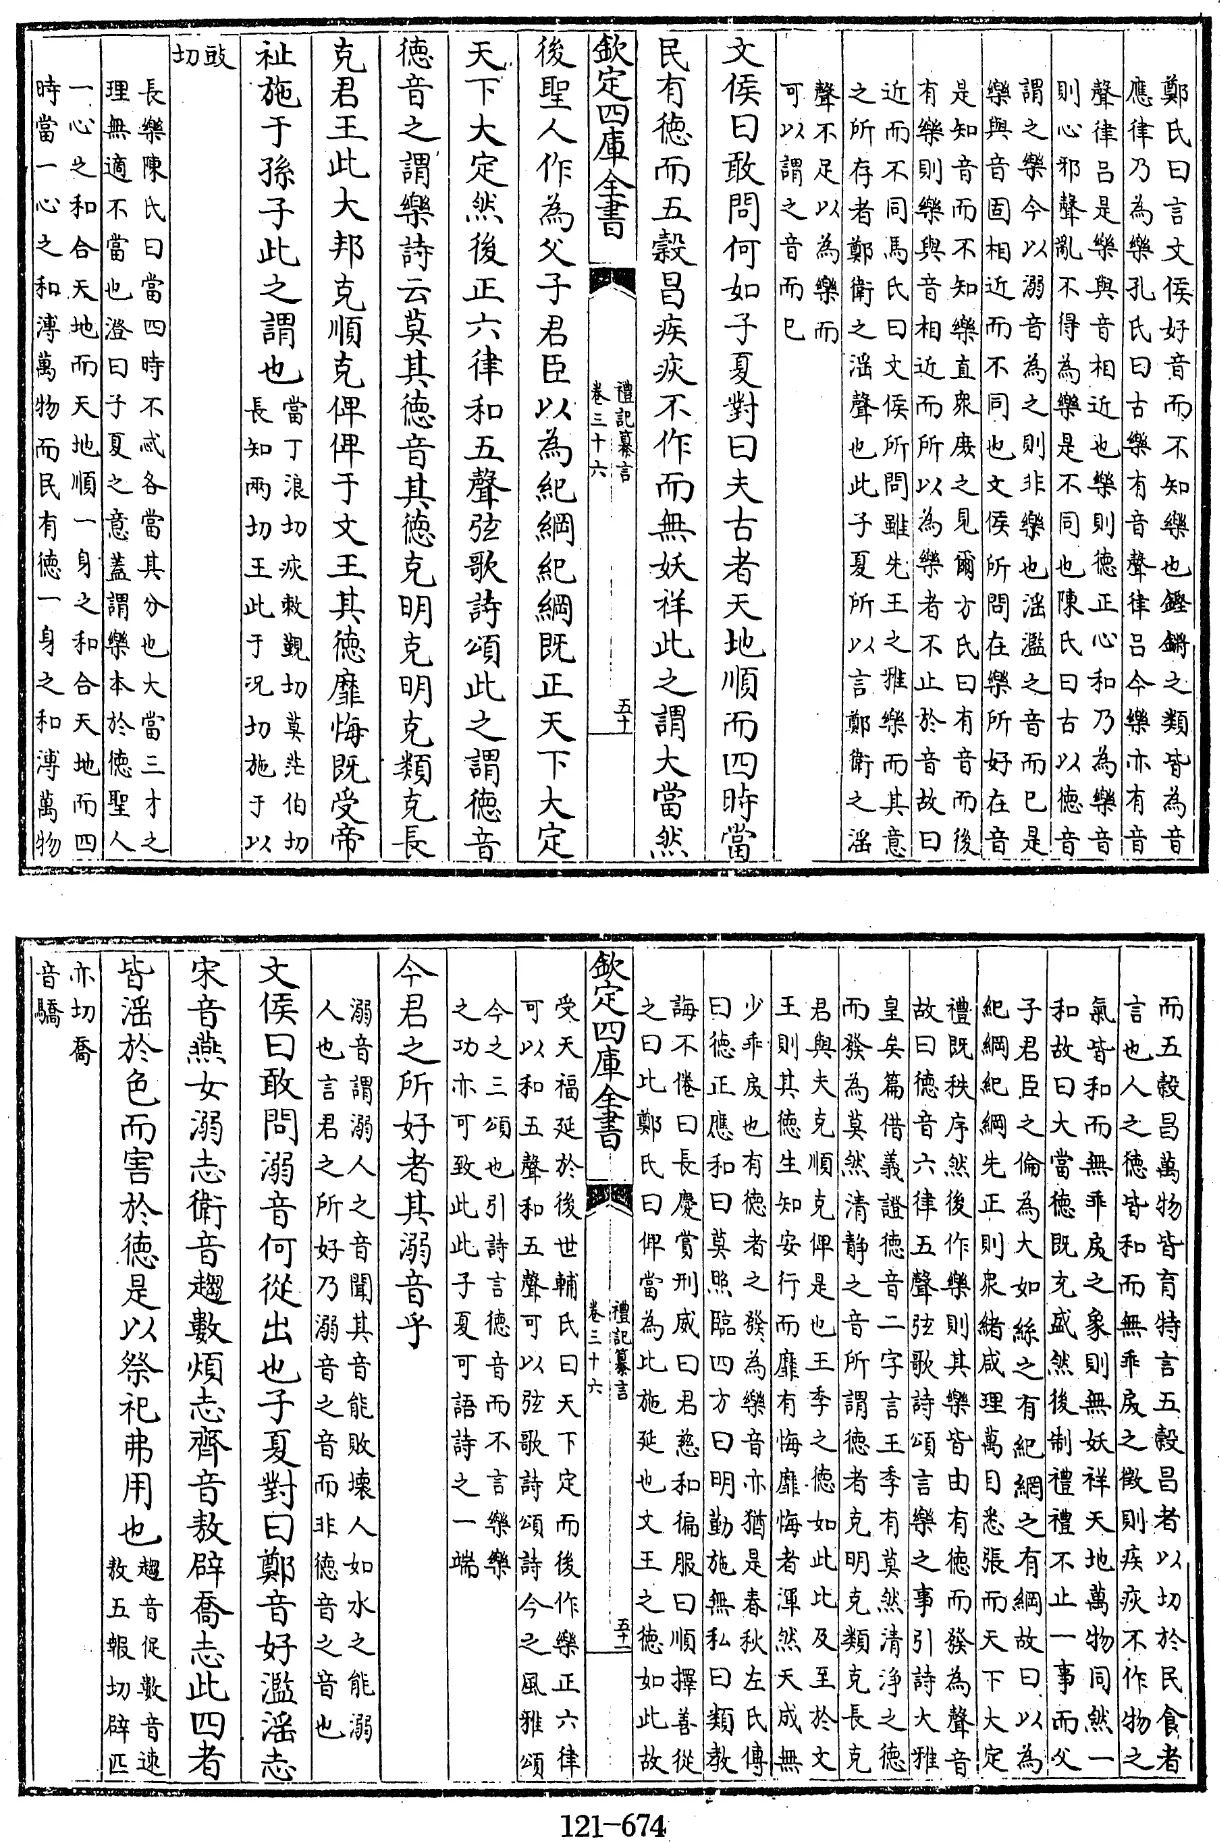 鄭氏曰言文侯好音而不知樂也鏗鏘之類皆為音
應律乃為樂孔氏曰古樂有音聲律呂今樂亦有音
聲律呂是樂與音相近也樂則德正心和乃為樂音
則心邪聲亂不得為樂是不同也陳氏曰古以德音
謂之樂今以溺音為之則非樂也滛濫之音而已是
樂與音固相近而不同也文侯所問在樂所好在音
是知音而不知樂直衆庶之見爾方氏曰有音而後
有樂則樂與音相近而所以為樂者不止於音故曰
近而不同馬氏曰文侯所問雖先王之雅樂而其意
之所存者鄭衛之滛聲也此子夏所以言鄭衛之滛
聲不足以為樂而
可以謂之音而已
文侯曰敢問何如子夏對曰夫古者天地順而四時當
民有德而五穀昌疾疢不作而無妖祥此之謂大當然
欽定四庫全書
禮記纂言
卷三十六
五十
後聖人作為父子君臣以為紀綱紀綱既正天下大定
天下大定然後正六律和五聲弦歌詩頌此之謂德音
德音之謂樂詩云莫其德音其德克明克明克類克長
克君王此大邦克順克俾俾于文王其德靡悔既受帝
祉施于孫子此之謂也
當丁浪切疢敕覲切莫茫伯切
長知兩切王此于况切施于以
豉
切
長樂陳氏曰當四時不忒各當其分也大當三才之
理無適不當也澄曰子夏之意蓋謂樂本於德聖人
一心之和合天地而天地順一身之和合天地而四
時當一心之和溥萬物而民有德一身之和溥萬物
而五穀昌萬物皆育特言五穀昌者以切於民食者
言也人之德皆和而無乖戾之徵則疾疢不作物之
氣皆和而無乖戾之象則無妖祥天地萬物同然一
和故曰大當德既充盛然後制禮禮不止一事而父
子君臣之倫為大如絲之有紀網之有綱故曰以為
紀綱紀綱先正則衆緒咸理萬目悉張而天下大定
禮既秩序然後作樂則其樂皆由有德而發為聲音
故曰德音六律五聲弦歌詩頌言樂之事引詩大雅
皇矣篇借義證德音二字言王季有莫然清淨之德
而發為莫然清靜之音所謂德者克明克類克長克
君與夫克順克俾是也王季之德如此比及至於文
王則其德生知安行而靡有悔靡悔者渾然天成無
少乖戾也有德者之發為樂音亦猶是春秋左氏傳
曰德正應和曰莫照臨四方曰明勤施無私曰類教
誨不倦曰長慶賞刑威曰君慈和徧服曰順擇善從
之曰比鄭氏曰俾當為比施延也文王之德如此故
欽定四庫全書
禮記纂言
卷三十六
五十一
受天福延於後世輔氏曰天下定而後作樂正六律
可以和五聲和五聲可以弦歌詩頌詩今之風雅頌
今之三頌也引詩言德音而不言樂樂
之功亦可致此此子夏可語詩之一端
今君之所好者其溺音乎
溺音謂溺人之音聞其音能敗壞人如水之能溺
人也言君之所好乃溺音之音而非德音之音也
文侯曰敢問溺音何從出也子夏對曰鄭音好濫滛志
宋音燕女溺志衛音趨數煩志齊音敖辟喬志此四者
皆滛於色而害於德是以祭祀弗用也
趨音促數音速
敖五報切辟匹
亦切喬
音驕
121-674